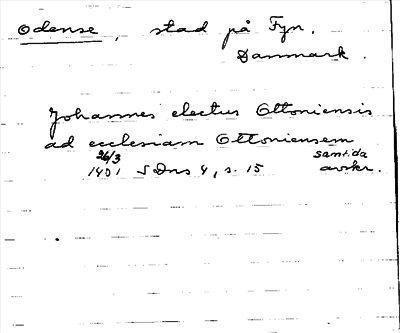 Odense, stad på Fyn,
Danmark.
Johannes electus Ottoniensis
ad ecclesiam Ottoniensem
26/3 samtida
1401 SDns 4, s. 15 avskr.